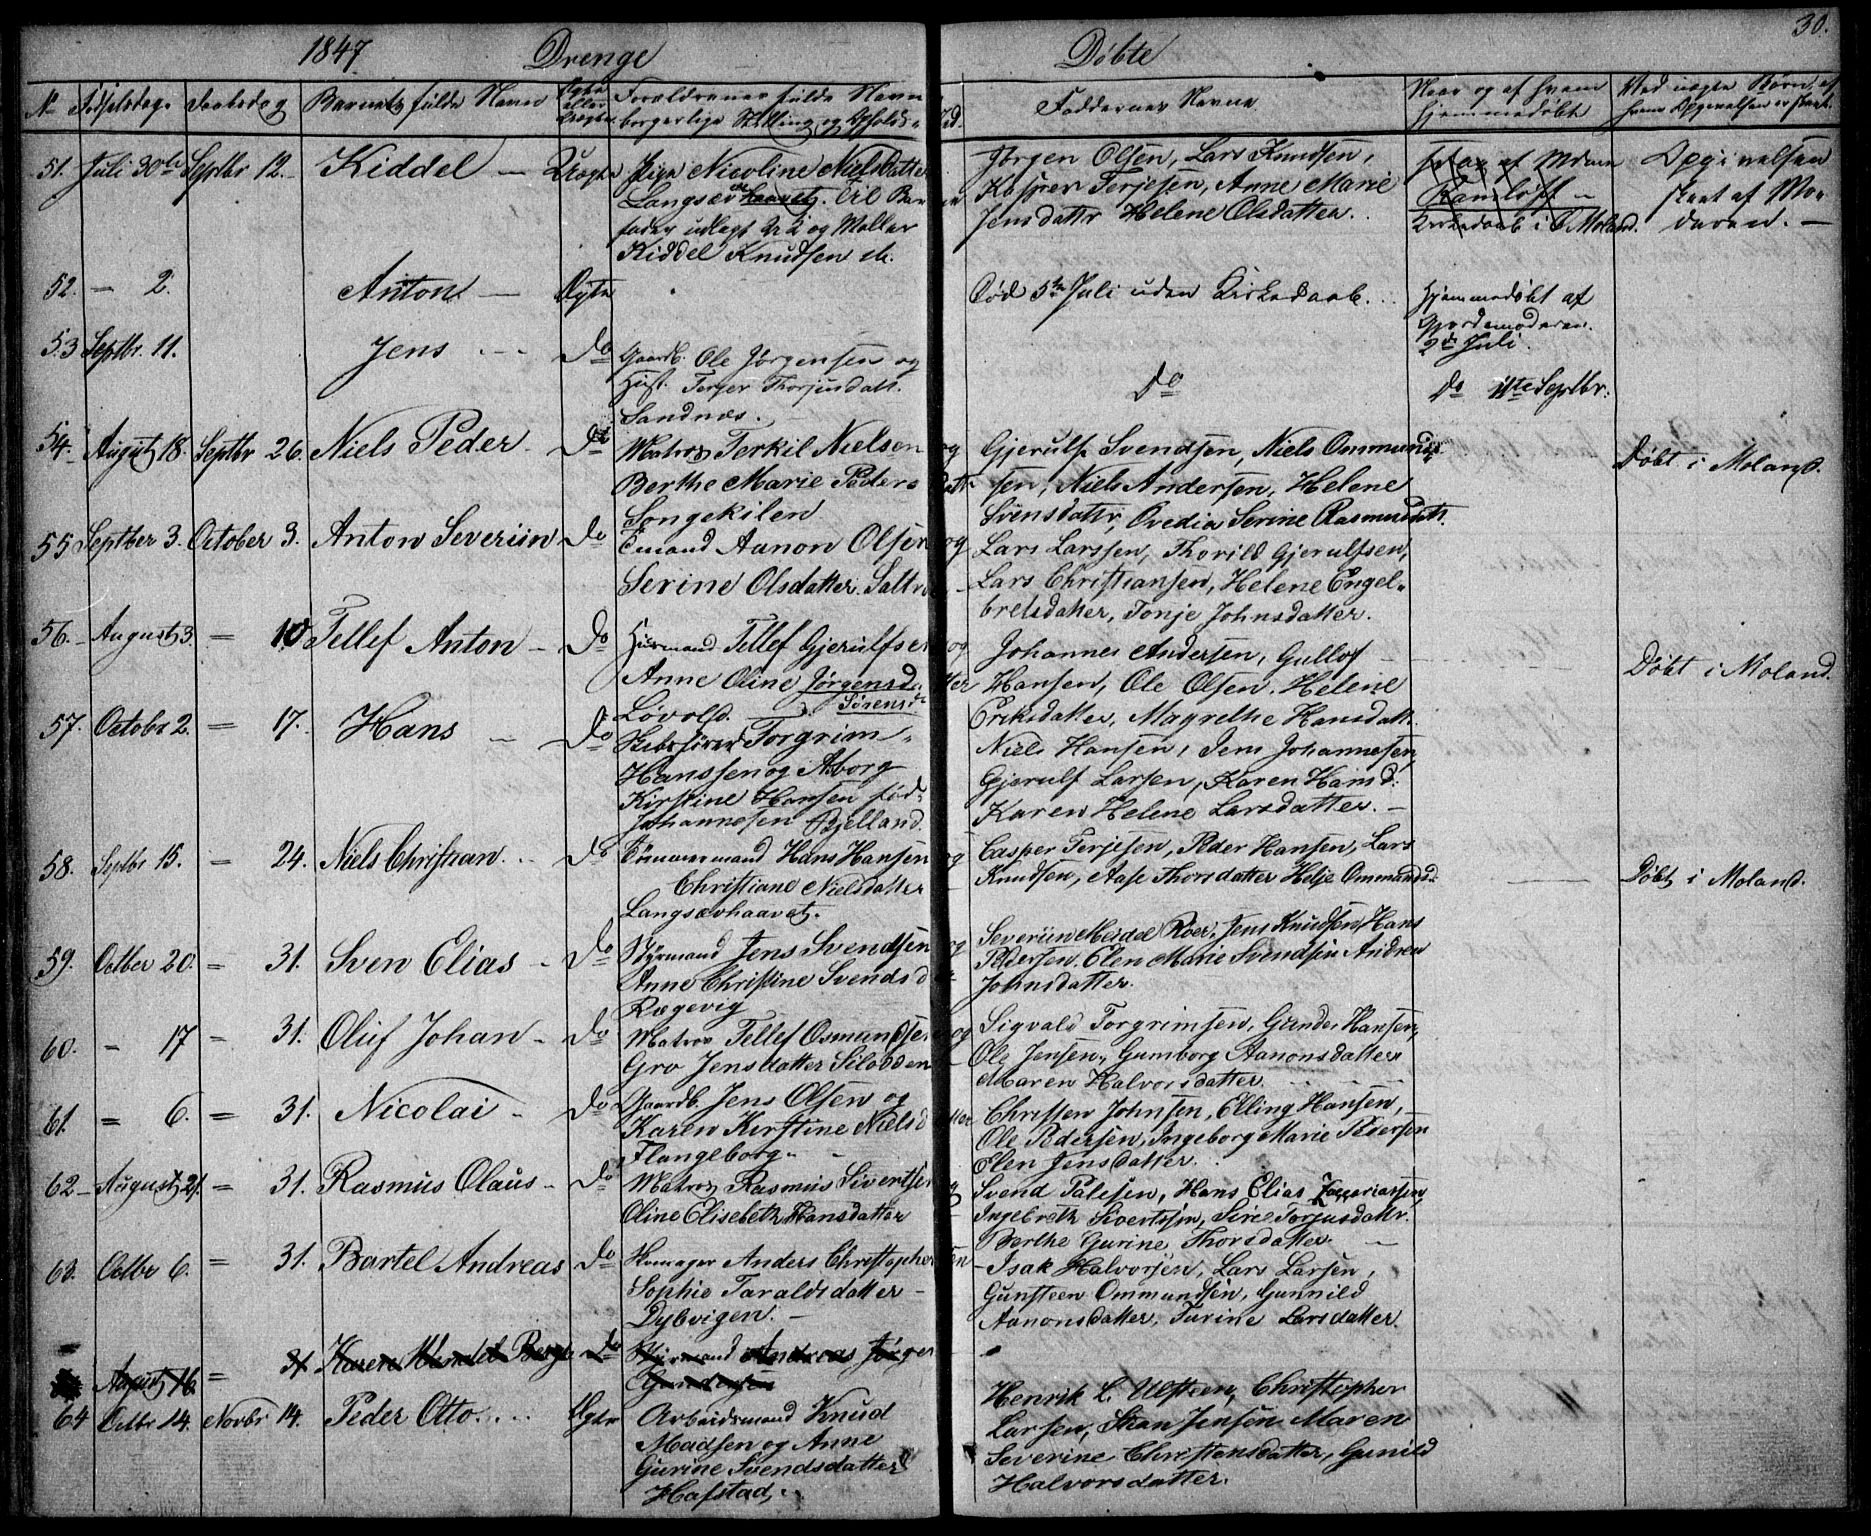 1847 Drenge Døbte 30.
No Fødselsdag Daabsdag Barnets fulde Navn Ægte eller Uægte Forældrenes fulde Navn borgerlige Stilling og Opholdssted. Faddernes Navne Naar og af hvem hjemmedøbt Ved uægte Børn, af hvem Opgivelsen er skeet.
51. Juli 30te Septbr 12. Kiddel Uægte Pige Nicoline Nielsdatter
Langsæv haavet. til Barne
fader udlagt og Møller
Kiddel Knudsen
Jørgen Olsen, Lars Knudsen,
Kasper Terjesen, Anne Marie
Jensdattr Helene Olsdatter.
af
Kirkedaab i Ø. Moland.
Opgivelsen
skeet af Mo-
deren.
52. — 2. Anton Ægte
Død 5te Juli uden Kirkedaab.
Hjemmedøbt af
Gjordemoderen
2den Juli.
53 Septbr. 11. Jens Do
Gaardb. Ole Jørgensen og
Hust. Torjusdatt.
Sandnæs.
Do
Do 11te Septbr.
54. August 18. Septbr 26. Niels Peder Do Matros Terkil Nielsen og
Berthe Marie Pedersdattr
Songekilen
Gjerulf Svendsen, Niels Ommund-
sen, Niels Andersen, Helene
Svensdattr, Ovedia Serine Rasmusdatt.
Døbt i Moland.
55 Septber 3. October 3. Anton Severiin Do Aanon Olsen og
Serine Olsdatter
Lars Larssen, Thorild Gjerulfsen,
Lars Christiansen, Helene Engel-
bretsdatter, Tonje Johnsdatter.
56. August 3. = 10 Tellef Anton Do Huusmand Tellef Gjerulfsen og
Anne Oline Jørgensdatter
Sørensd.
Løvold.
Johannes Andersen, Gullof
Hansen, Ole Olsen, Helene
Eriksdatter, Magrethe Hansdatt.
Døbt i Moland.
57. Octobr 2. = 17. Hans Do Skibsfører Torgrim
Hanssen og Aborg
Kirstine Hansen fød
Johannesen Bjelland.
Niels Hansen, Jens Johannesen,
Gjerulf Larsen, Karen Hansd.
Karen Helene Larsdatter.
58. Septbr 15. = 24. Niels Christian Do Tømmermand Hans Hansen og
Christiane Nielsdatter
Langsævhaavet.
Casper Terjesen, Peder Hansen, Lars
Knudsen, Aase Thorsdatter Helje Ommundsd.
Døbt i Moland.
59. Octber 20. = 31. Sven Elias Do Styrmand Jens Svendsen og
Anne Christine Svendsd
Rægevig
Severiin Meidel Roer, Jens Knudsen, Hans
Pedersen, Elen Marie Svendsen Andrea
Johnsdatter.
60. = 17 = 31. Oluf Johan Do Matros Tellef Osmundsen og
Gro Jensdatter Silodden
Sigvald Torgrimsen, Gunder Hansen,
Ole Jensen, Gumborg Aanonsdatter
Maren Halvorsdatter
61. = 6. = 31. Nicolai Do Gaardb. Jens Olsen og
Karen Kirstine Nielsdatter
Flangeborg
Christen Johnsen, Elling Hansen,
Ole Pedersen, Ingeborg Marie Pedersen
Elen Jensdatter.
62 August 21. = 31. Rasmus Olaus Do Matros Rasmus Sivertsen
Oline Elisebeth Hansdatter
Svend Palesen, Hans Elias Zaccariassen,
Ingebreth Sivertsen, Siril Torjusdattr.
Berthe Gurine Thorsdatter
63. Octbr 6. = 31. Bartel Andreas Do Anders Christophersen
Sophie Taraldsdatter
Dybvigen.
Isak Halvorsen, Lars Larsen,
Gunsteen Ommundsen, Gunnild
Aanonsdatter, Turine Larsdatter.
August 16. = 31 Karen Do Styrmand Andreas Jørgen
Gundersen
64 Octbr 14. Novbr 14. Peder Otto Ægte Arbeidsmand Knud
Madsen og Anne
Gurine Svendsdatter
Hafstad
Henrik L. Ulsteen, Christopher
Larsen, Jensen Maren
Severine Christensdatter, Gunild
Halvorsdatter.